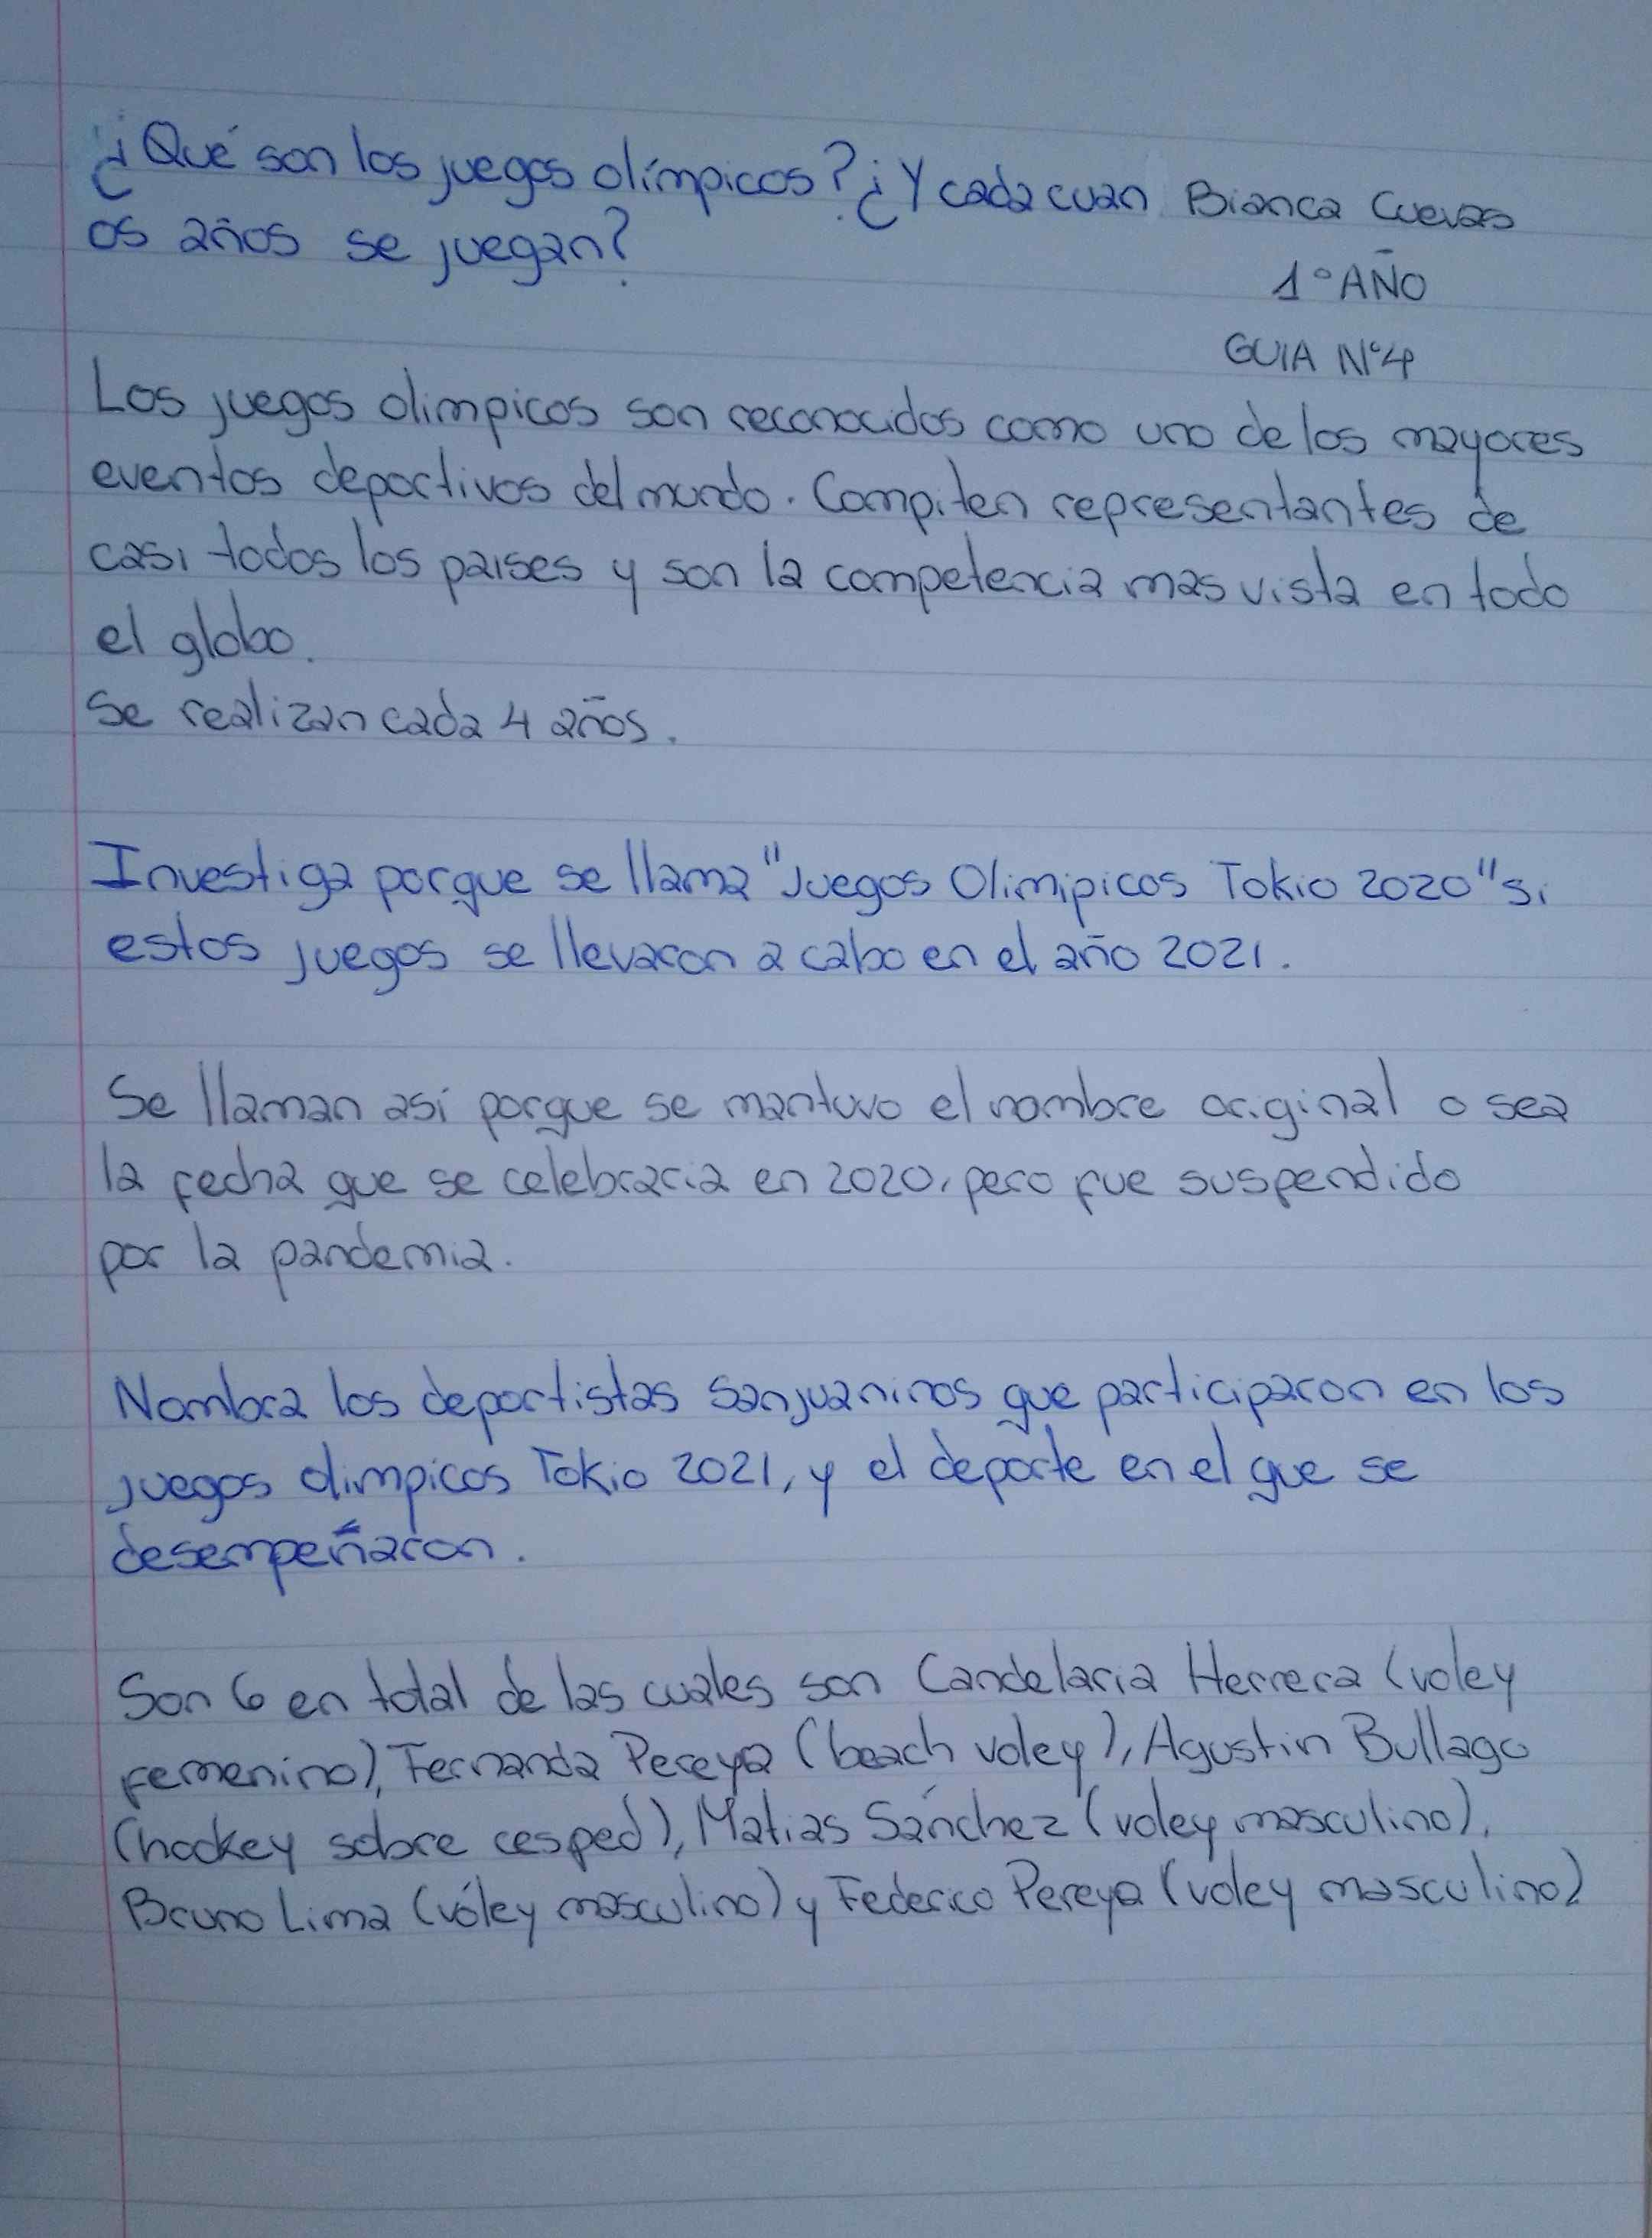 ¿Qué son los juegos olímpicos? ¿Y cada cuan
os años se juegan?
Bianca Cuevas
1° AÑO
GUIA N°4
Los juegos olimpicos son reconocidos como uno de los mayores
eventos deportivos del mundo. Compiten representantes de
casi todos los paises y son la competencia mas vista en todo
el globo.
Se realizan cada 4 años.
Investiga porque se llama "Juegos Olimipicos Tokio 2020" si
estos juegos se llevaron a cabo en el año 2021.
Se llaman así porque se mantuvo el nombre original o sea
la fecha que se celebraria en 2020, pero fue suspendido
por la pandemia.
Nombra los deportistas sanjuaninos que participaron en los
juegos olimpicos Tokio 2021, y el deporte en el que se
desempeñaron.
Son 6 en total de las cuales son Candelaria Herrera (voley
femenino), Fernanda Pereya (beach voley), Agustin Bullago
(hockey sobre cesped), Matias Sánchez (voley masculino),
Bruno Lima (vóley masculino) y Federico Pereya (voley masculino)